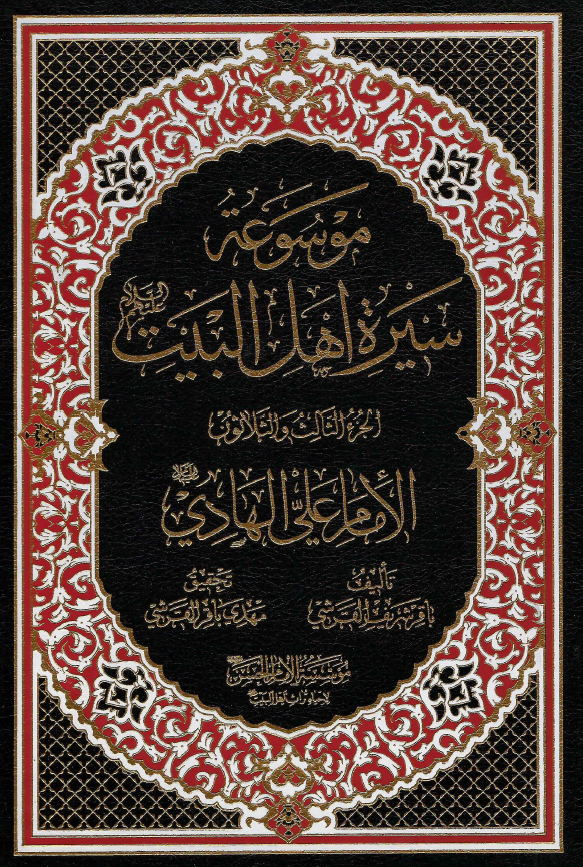 مَوْسُوعَةُ
سِيرَةِ أَهْلِ البَيْتِ عليهم السلام
الجُزءُ الثَّالِثُ وَالثَّلَاثُونُ
الإِمَامُ عَلِيُّ الهَادِي عليه السلام
تَأليفُ
باقر شريف القرشي
تَحقيقُ
مهدي باقر القرشي
مؤسسة الإمام الحسن
لإحياء تراث أهل البيت